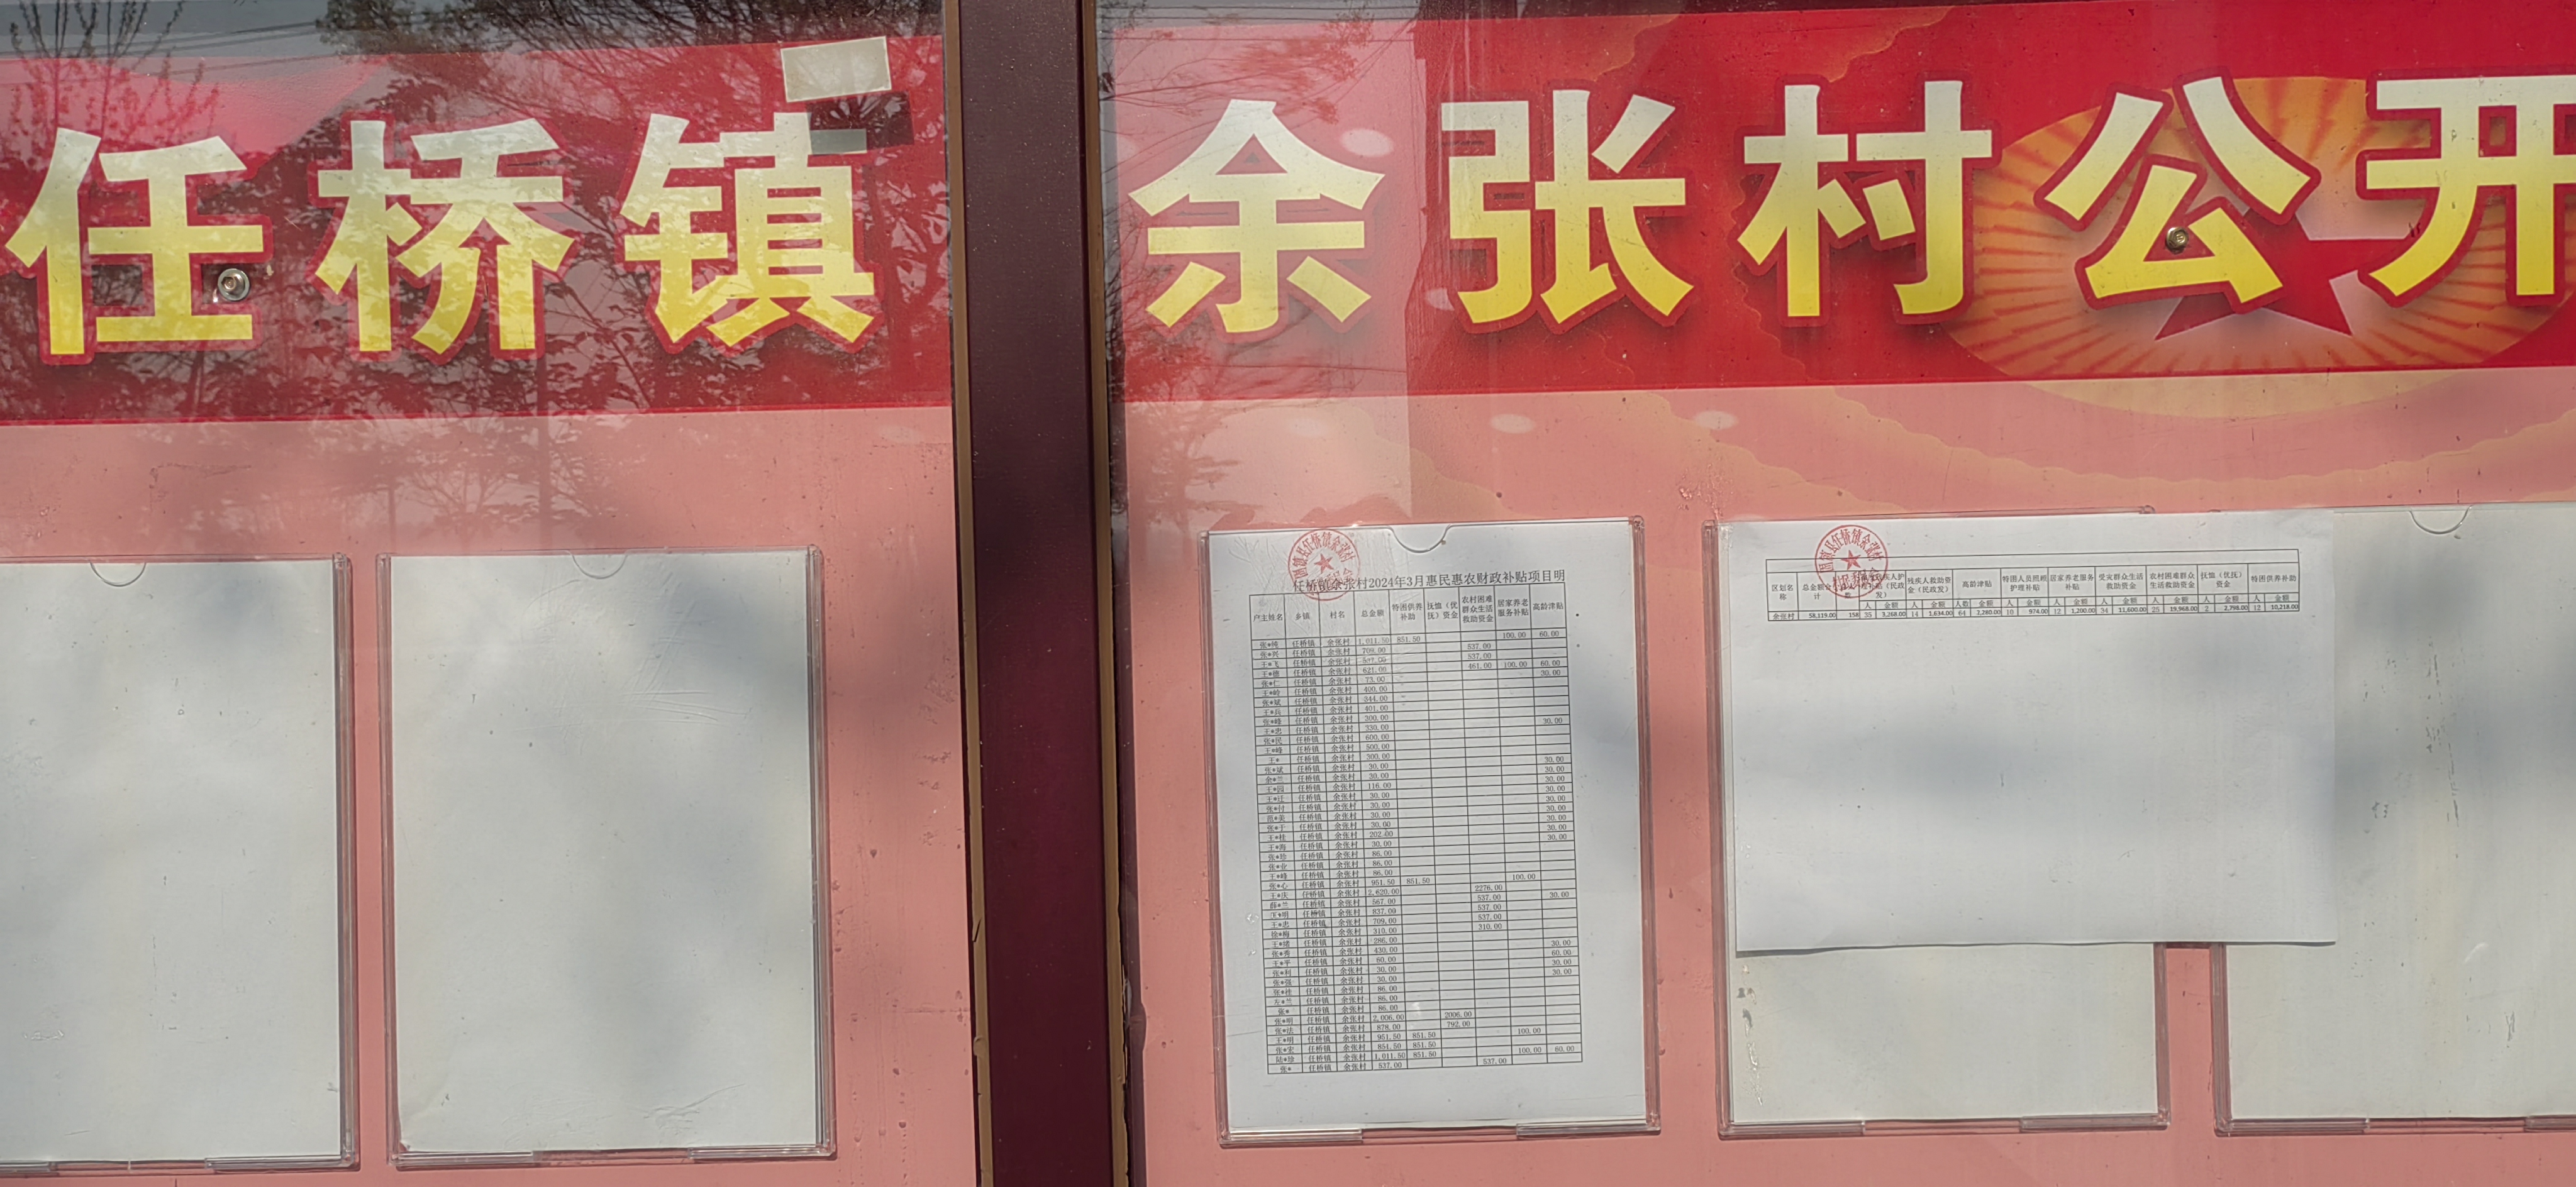 任桥镇 余张村公开
任桥镇余张村2024年3月惠民惠农财政补贴项目明
户主姓名 乡镇 村名 总金额 特困供养补助 抚恤（优抚）资金 农村困难群众生活救助资金 居家养老服务补贴 高龄津贴
任桥镇 余张村 1,011.50 851.50 100.00 60.00
任桥镇 余张村 709.00 537.00
任桥镇 余张村 537.00 537.00
任桥镇 余张村 621.00 461.00 100.00 60.00
张*仁 任桥镇 余张村 73.00 30.00
任桥镇 余张村 400.00
张*斌 任桥镇 余张村 344.00
王*兵 任桥镇 余张村 401.00
张*峰 任桥镇 余张村 300.00
王*忠 任桥镇 余张村 330.00 30.00
张*民 任桥镇 余张村 600.00
王*峰 任桥镇 余张村 500.00
王* 任桥镇 余张村 300.00
张*斌 任桥镇 余张村 30.00 30.00
余*兰 任桥镇 余张村 30.00 30.00
王*园 任桥镇 余张村 116.00 30.00
任桥镇 余张村 30.00 30.00
张*付 任桥镇 余张村 30.00 30.00
范*美 任桥镇 余张村 30.00 30.00
张*于 任桥镇 余张村 30.00 30.00
王*桂 任桥镇 余张村 202.00 30.00
王*海 任桥镇 余张村 30.00 30.00
张*珍 任桥镇 余张村 86.00
张*业 任桥镇 余张村 86.00
王*峰 任桥镇 余张村 86.00
张*心 任桥镇 余张村 951.50 851.50 100.00
王*庆 任桥镇 余张村 2,620.00 2276.00
薛*兰 任桥镇 余张村 567.00 537.00 30.00
任桥镇 余张村 837.00 537.00
王*忠 任桥镇 余张村 709.00 537.00
徐*梅 任桥镇 余张村 310.00 310.00
任桥镇 余张村 286.00
张*秀 任桥镇 余张村 430.00 30.00
王*平 任桥镇 余张村 60.00 60.00
张*利 任桥镇 余张村 30.00 30.00
任桥镇 余张村 30.00 30.00
张*桂 任桥镇 余张村 86.00
左*兰 任桥镇 余张村 86.00
张* 任桥镇 余张村 86.00
张*明 任桥镇 余张村 2,006.00 2006.00
张*法 任桥镇 余张村 878.00 792.00
王*明 任桥镇 余张村 951.50 851.50 100.00
张*宏 任桥镇 余张村 851.50 851.50
陆*珍 任桥镇 余张村 1,011.50 851.50 100.00 60.00
张* 任桥镇 余张村 537.00 537.00
区划名称 总金额合计 残疾人救助资金（民政发） 高龄津贴 特困人员照料护理补贴 居家养老服务补贴 受灾群众生活救助资金 农村困难群众生活救助资金 抚恤（优抚）资金 特困供养补助
人 金额 人 金额 人数 金额 人 金额 人 金额 人 金额 人 金额 人 金额 人 金额
余张村 58,119.00 158 35 3,268.00 14 1,634.00 64 2,280.00 10 974.00 12 1,200.00 34 11,600.00 25 19,968.00 2 2,798.00 12 10,218.00